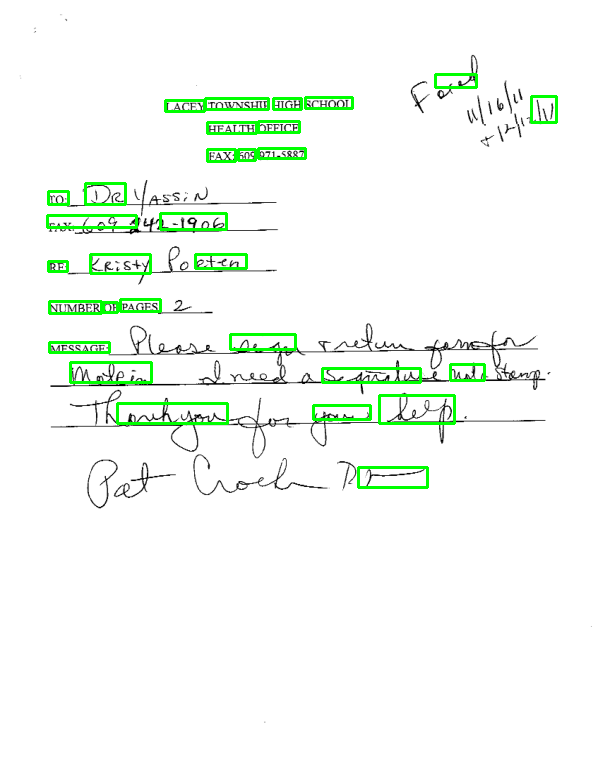 Faxed
11/16/11
+ 12/1/11
LACEY TOWNSHIP HIGH SCHOOL
HEALTH OFFICE
FAX: 609 971-5887
TO: DR Yassin
FAX: 609 242-1906
RE: Kristy Poeten
NUMBER OF PAGES 2
MESSAGE: Please sign & return form for
Motrin I need a signature not stamp.
Thank you for your help.
Pat Croch